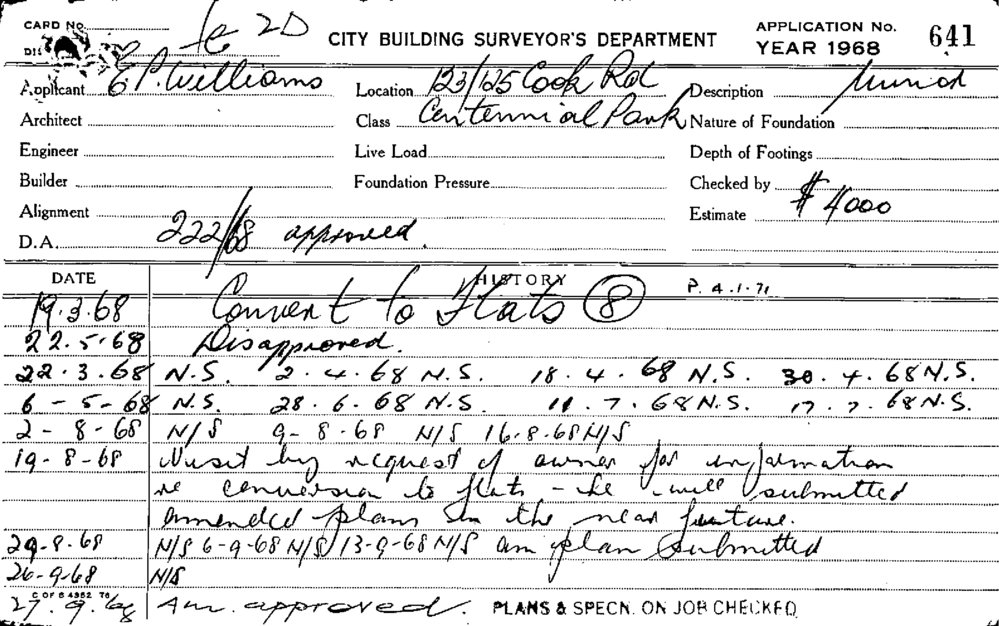 CARD No. fc 2D CITY BUILDING SURVEYOR'S DEPARTMENT APPLICATION No. 641
YEAR 1968
Applicant E P. Williams Location 123/125 Cook Rd Description
Architect Class Centennial Park Nature of Foundation
Engineer Live Load Depth of Footings
Builder Foundation Pressure Checked by
Alignment Estimate $ 4000
D.A. 222/68 approved.
DATE HISTORY P. 4.1.71
19.3.68 Convert to Flats 8
22.5.68 Disapproved.
22.3.68 N.S. 2.4.68 N.S. 18.4.68 N.S. 30.4.68 N.S.
6-5-68 N.S. 28.6.68 N.S. 11.7.68 N.S. 17.7.68 N.S.
2-8-68 N/S 9-8-68 N/S 16.8.68 N/S
19-8-68 Visit by request of owner for information
re conversion to flats - he will submitted
amended plans in the near future.
29.8.68 N/S 6-9-68 N/S 13-9-68 N/S am plan submitted
26-9-68 N/S
C OF S 4352 76
27.9.68 Am. approved. PLANS & SPECN. ON JOB CHECKED